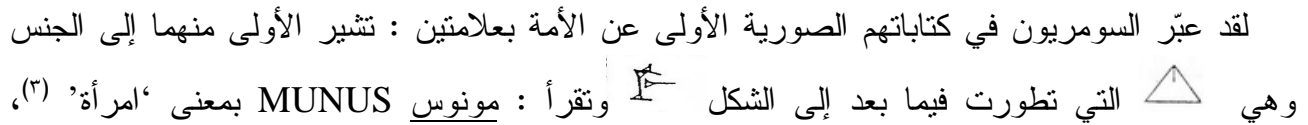 لقد عبّر السومريون في كتاباتهم الصورية الأولى عن الأمة بعلامتين : تشير الأولى منهما إلى الجنس
وهي التي تطورت فيما بعد إلى الشكل وتقرأ : مونوس MUNUS بمعنى ‘امرأة’ (٣)،